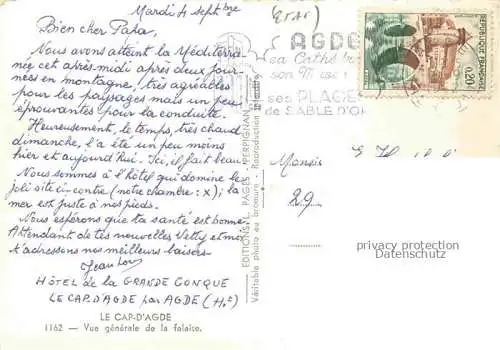 Mardi 4 septbre
Bien cher Papa,
Nous avons atteint la Méditerra
née cet après-midi après deux jour
nées en montagne, très agréables
pour les paysages mais un peu
éprouvantes pour la conduite.
Heureusement, le temps, très chaud
dimanche, l'a été un peu moins
hier et aujourd'hui. Ici, il fait beau
Nous sommes à l'hôtel qui domine le
joli site ci-contre (notre chambre : x); la
mer est juste à nos pieds.
Nous espérons que ta santé est bonne
Attendant de tes nouvelles Vetty et moi
t'adressons nos meilleurs baisers
Jean
HÔTEL de la GRANDE CONQUE
LE CAP D'AGDE par AGDE (Hlt)
LE CAP-D'AGDE
1162 - Vue générale de la falaise.
EDITIONS L. PAGÈS - PERPIGNAN
Véritable photo au bromure - Reproduction interdite
AGDE
sa Cathé
son Musée
ses PLAGE
de SABLE D'O
REPUBLIQUE FRANÇAISE
0,20
Monsie
29
privacy protection
Datenschutz